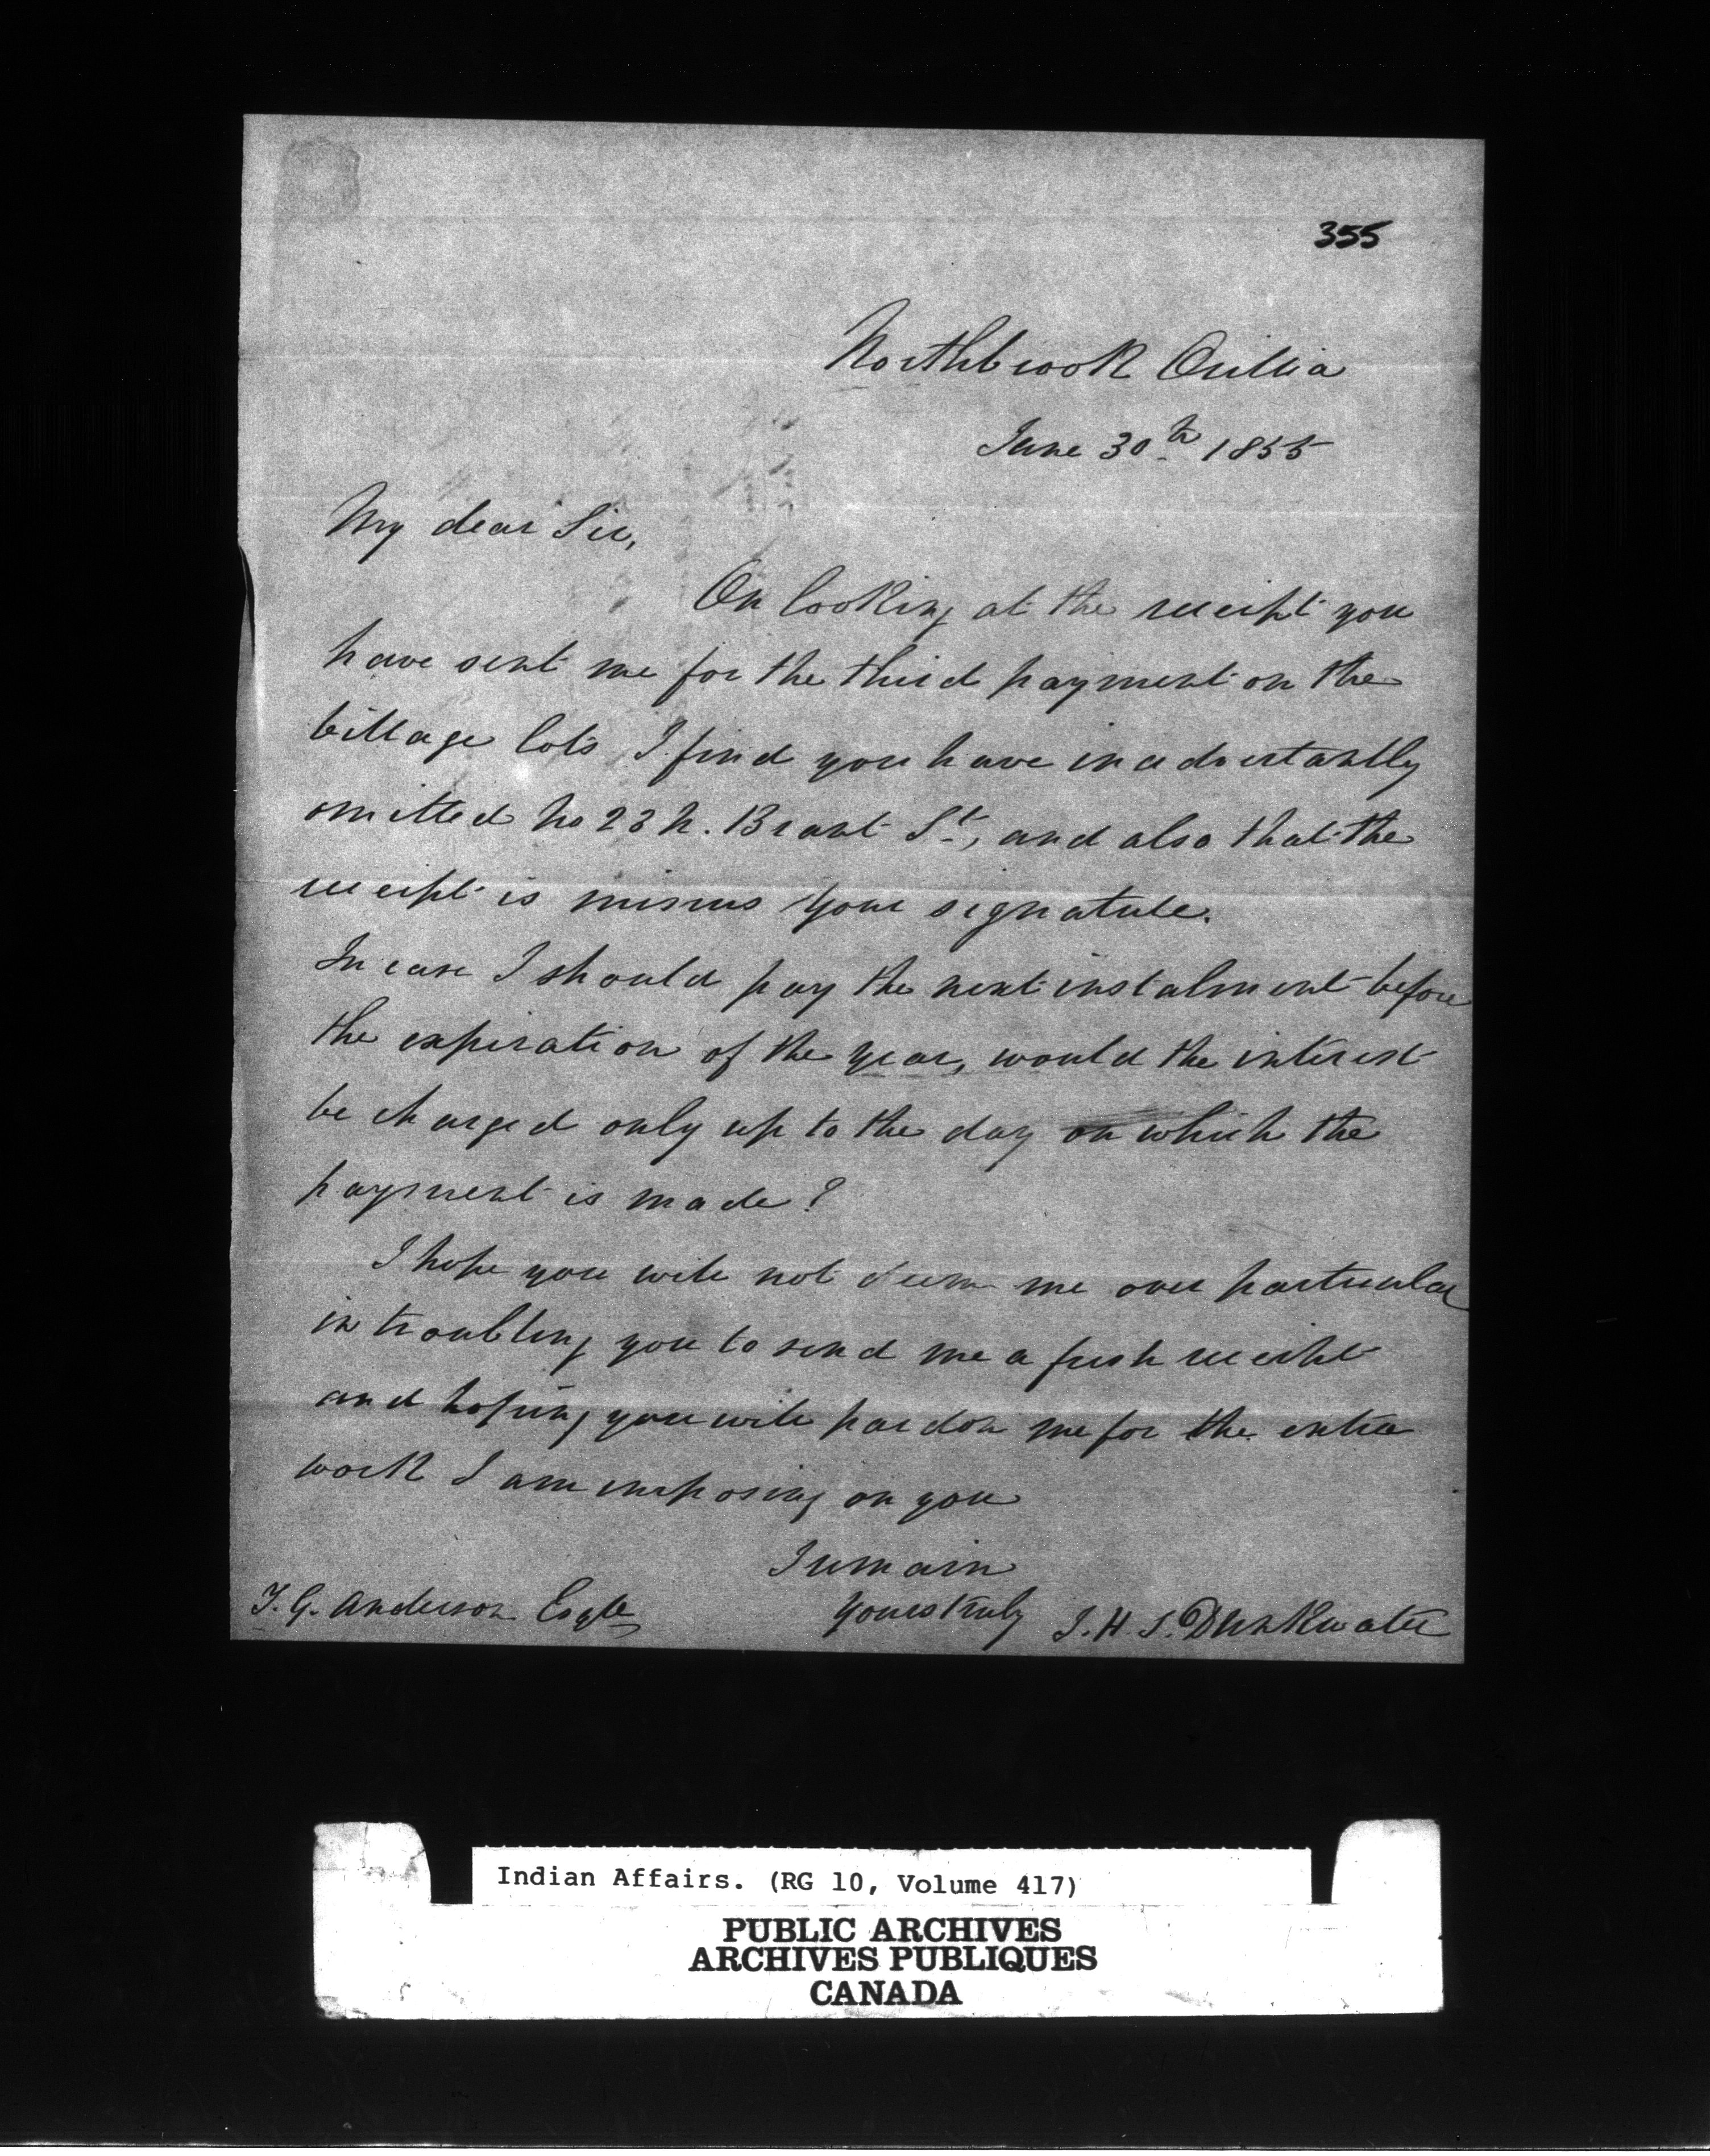 355
Northbrook Orillia
June 30th 1855
My dear Sir,
On looking at the receipt you
have sent me for the third payment on the
village lots I find you have inadvertantly
omitted No 23 N. Brant St, and also that the
receipt is minus your signature.
In case I should pay the next instalment before
the expiration of the year, would the interest
be charged only up to the day on which the
payment is made?
I hope you will not deem me over particular
in troubling you to send me a fresh receipt
and hoping you will pardon me for the extra
work I am imposing on you
I remain
Yours truly
T. G. Anderson Esqre
J. H. S. Drinkwater
Indian Affairs. (RG 10, Volume 417)
PUBLIC ARCHIVES
ARCHIVES PUBLIQUES
CANADA